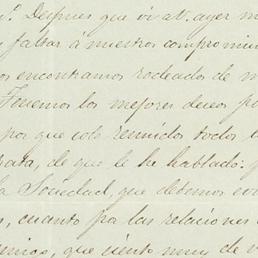 Despues que vi at. ayer m
faltar á nuestros compromi
os encontramos rodeados de m
Tenemos los mejores deseos po
por que esto reunidos todos l
rata, de que le he hablado:
la Sociedad, que debemos evi
s, cuanto pa las relaciones
que siento muy de v